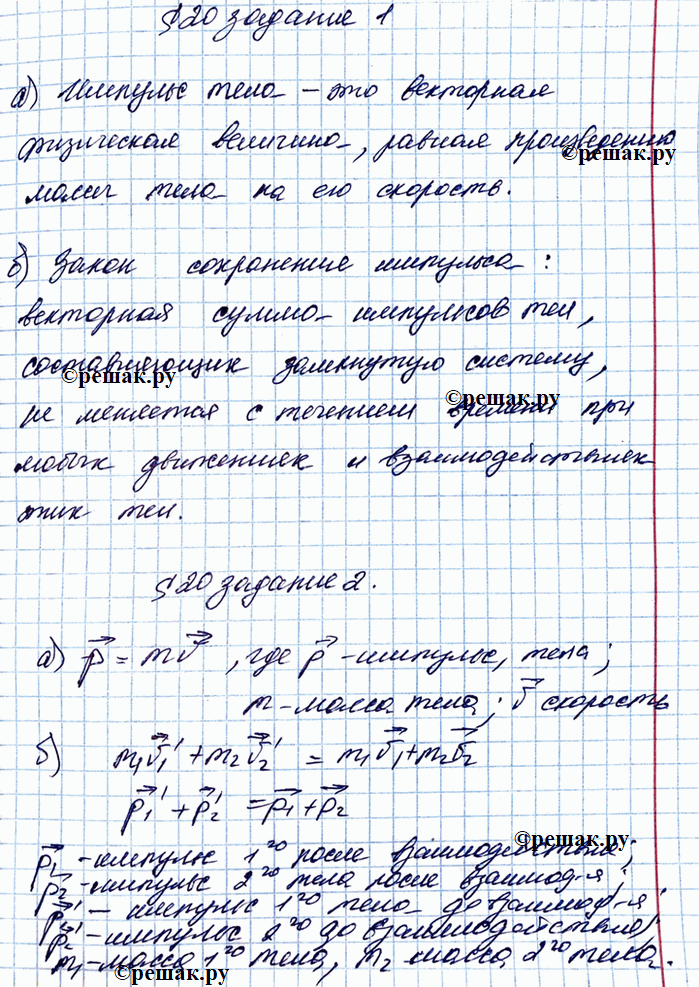 §20 задание 1
а) Импульс тела – это векторная
физическая величина, равная произведению
©решак.ру
массы тела на его скорость.
б) Закон сохранение импульса:
векторная сумма импулсов тел,
составляющих замкнутую систему,
©решак.ру
не меняется с течением времени при
©решак.ру
любых движениях и взаимодействиях
этих тел.
§20 задание 2.
а) p⃗ = mv⃗, где p⃗ - импульс, тела;
m - масса тела; v⃗ скорость
б) m₁v⃗₁' + m₂v⃗₂' = m₁v⃗₁ + m₂v⃗₂
p⃗₁' + p⃗₂' = p⃗₁ + p⃗₂
©решак.ру
p⃗₁ - импульс 1го после взаимодействия;
p⃗₂ - импульс 2го тела после взаимод-я;
p⃗₁' – импульс 1го тела до взаимод-я
p⃗₂' - импульс 2го до взаимодействия;
m₁ - масса 1го тела, m₂ масса 2го тела.
©решак.ру